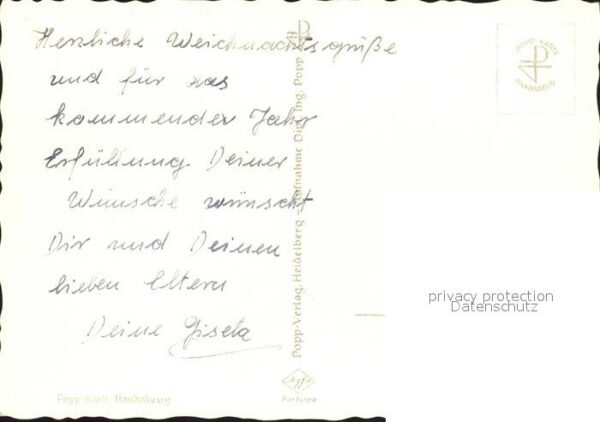 Herzliche Weichnachtsgrüße
und für das
kommender Jahr
Erfüllung Deiner
Wünsche wünscht
Dir und Deinen
lieben Eltern
Deine Gisela
Popp-Verlag, Heidelberg Aufnahme Dipl. Ing. Popp
POPP KARTE
HANDABZUG
privacy protection
Datenschutz
Popp Karte, Handabzug
Agfa
Portriga